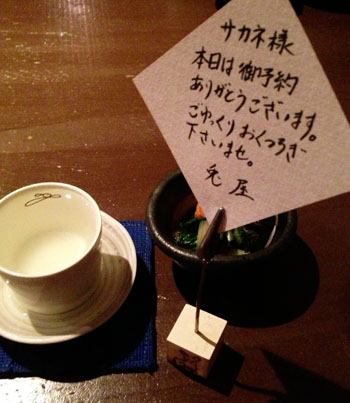 サカネ様
本日は御予約
ありがとうございます。
ごゆっくりおくつろぎ
下さいませ。
兎屋